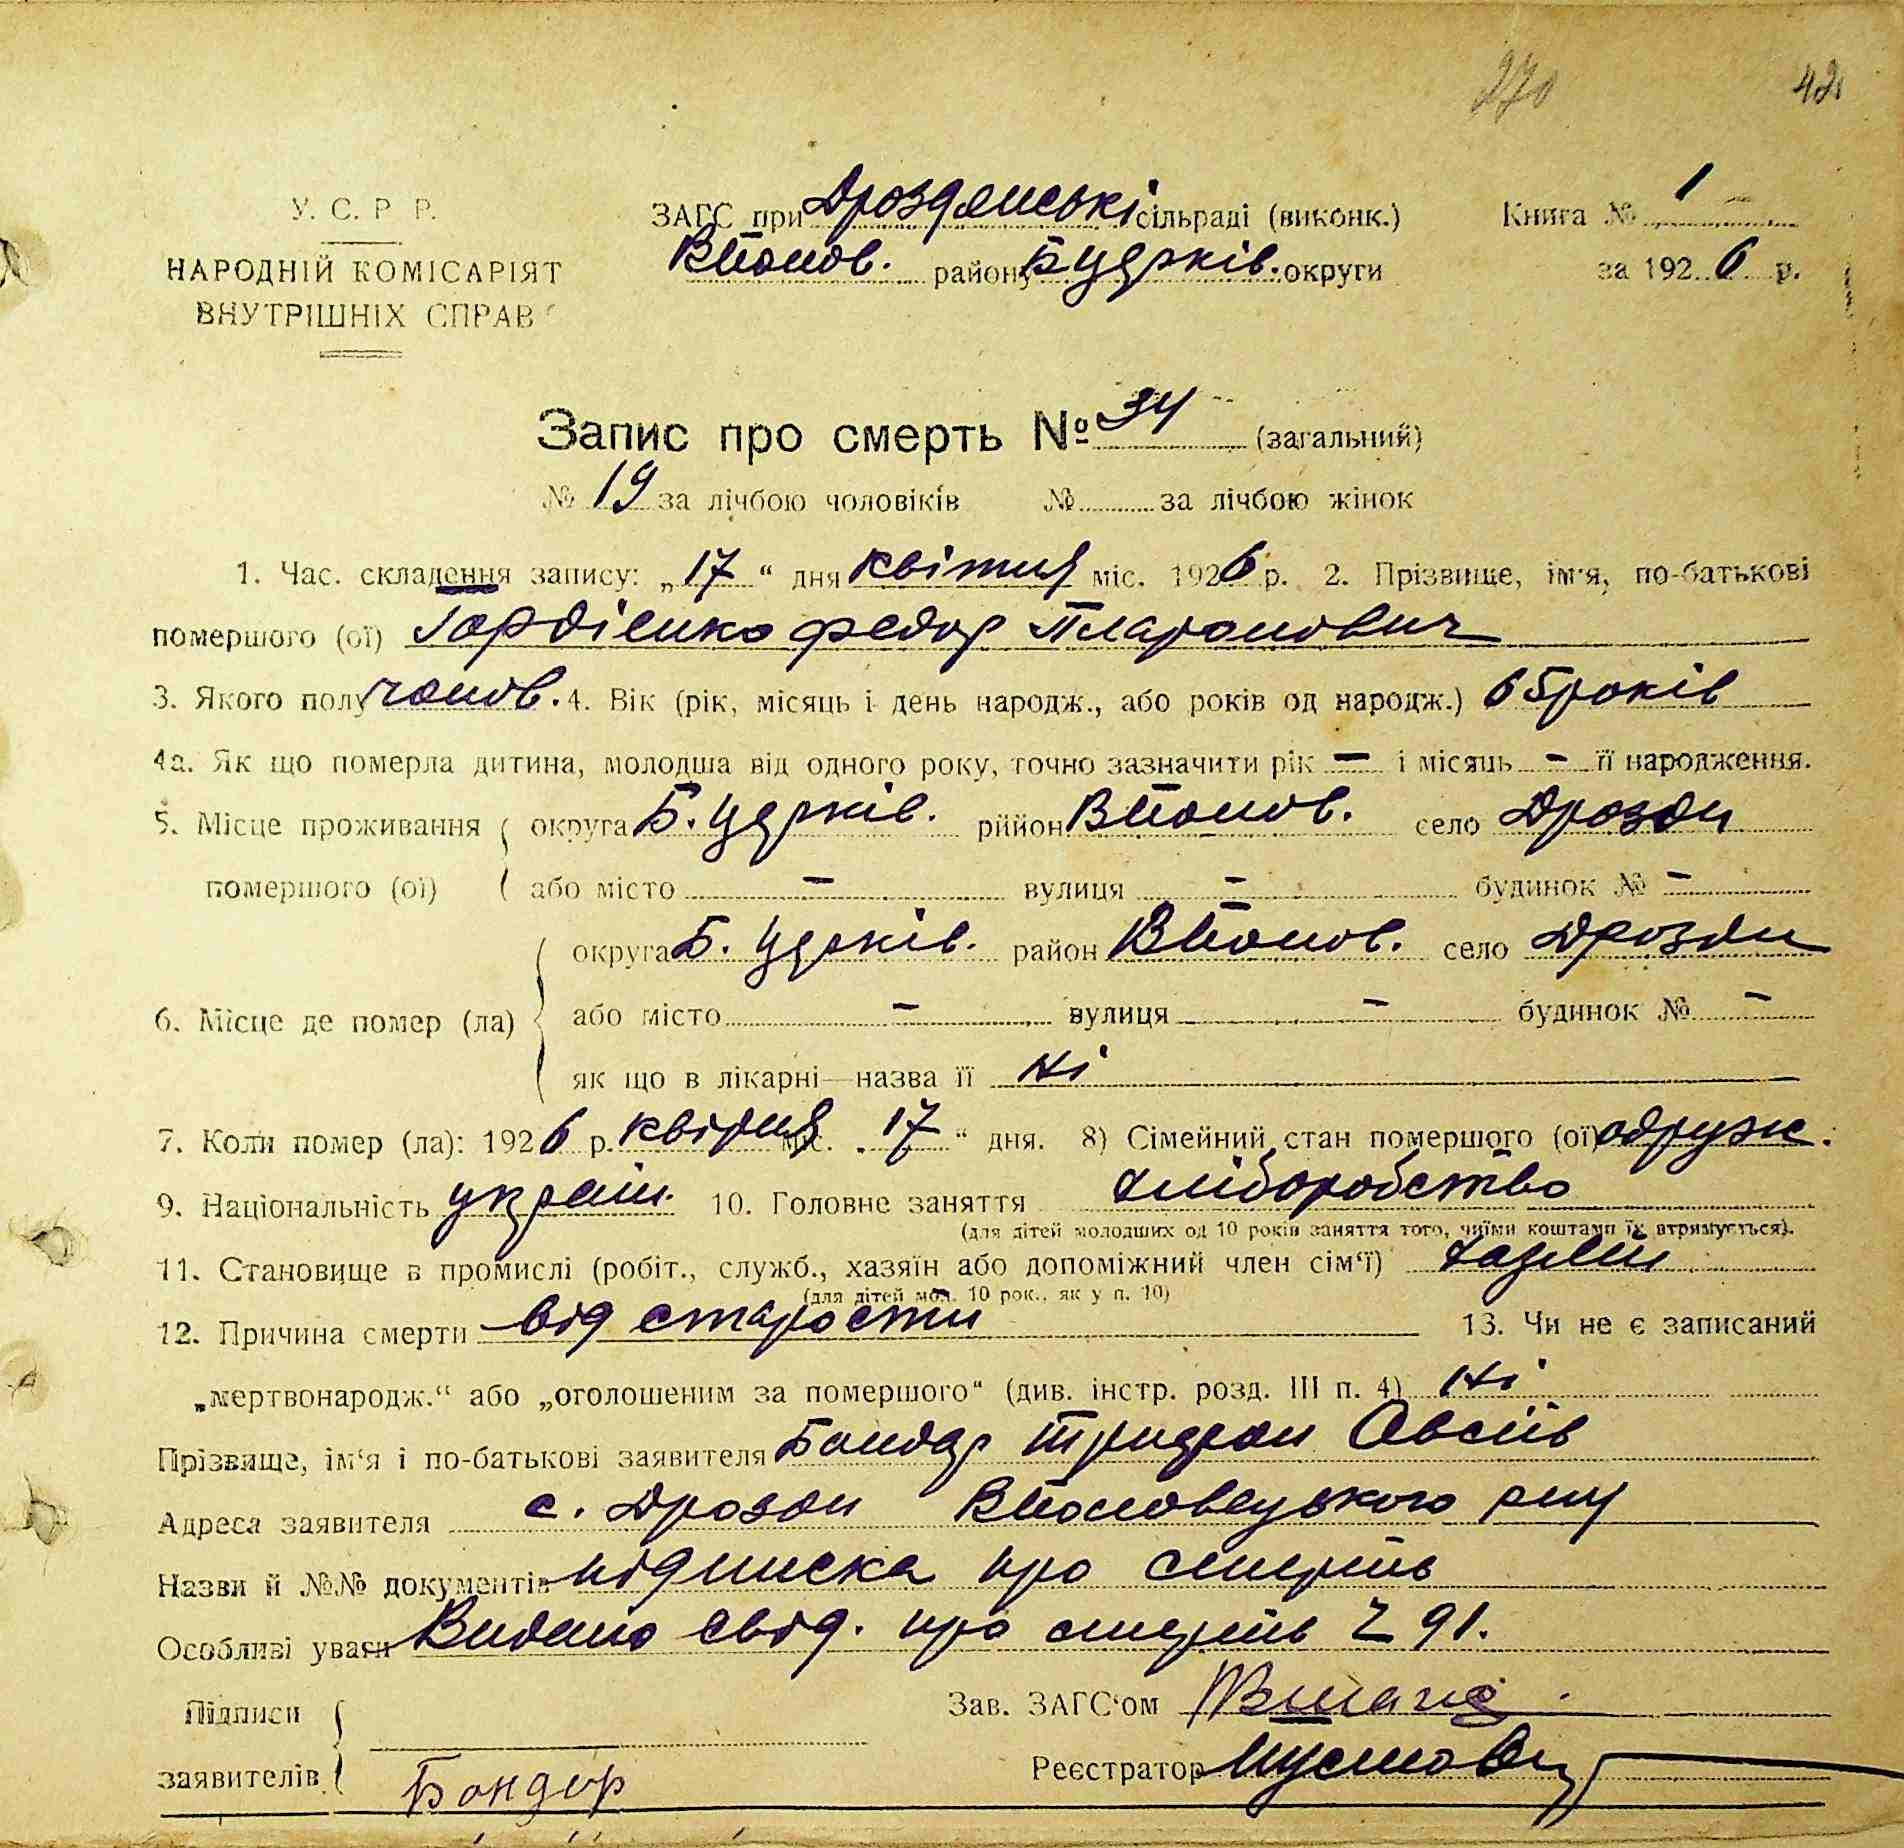 270 42
У. С. Р Р. ЗАГС при Дроздянські сільраді (виконк.) Книга № 1
НАРОДНІЙ КОМІСАРІЯТ району Б церків. округи за 1926 р.
ВНУТРІШНІХ СПРАВ
Запис про смерть № 34 (загальний)
№ 19 за лічбою чоловіків № за лічбою жінок
1. Час. складення запису: „17“ дня квітня міс. 1926 р. 2. Прізвище, ім'я, по-батькові
помершого (ої) Гордієнко Федор Платонович
3. Якого полу чолов. 4. Вік (рік, місяць і день народж., або років од народж.) 65 років
4а. Як що померла дитина, молодша від одного року, точно зазначити рік — і місяць - її народження.
5. Місце проживання округа Б. церків. рййон село Дрозди
помершого (ої) або місто — вулиця - будинок № -
округа Б. церків. район село Дрозди
6. Місце де помер (ла) або місто - вулиця - будинок № -
як що в лікарні—назва її Ні
7. Коли помер (ла): 1926 р. квітня міс. „17“ дня. 8) Сімейний стан помершого (ої) одруж.
9. Національність україн. 10. Головне заняття хліборобство
(для дітей молодших од 10 років заняття того, чиїми коштами їх втримується).
11. Становище в промислі (робіт., служб., хазяїн або допоміжний член сім'ї) хазяїн
(для дітей мол. 10 рок., як у п. 10)
12. Причина смерти від старости 13. Чи не є записаний
„мертвонародж.“ або „оголошеним за помершого“ (див. інстр. розд. III п. 4) Ні
Прізвище, ім'я і по-батькові заявителя Бондар Овсіїв
Адреса заявителя с. Дрозди р-ну
Назви й №№ документів підписка про смерть
Особливі уваги Видано свід. про смерть Ч 91.
Підписи Зав. ЗАГС'ом
заявителів Бондор Реєстратор